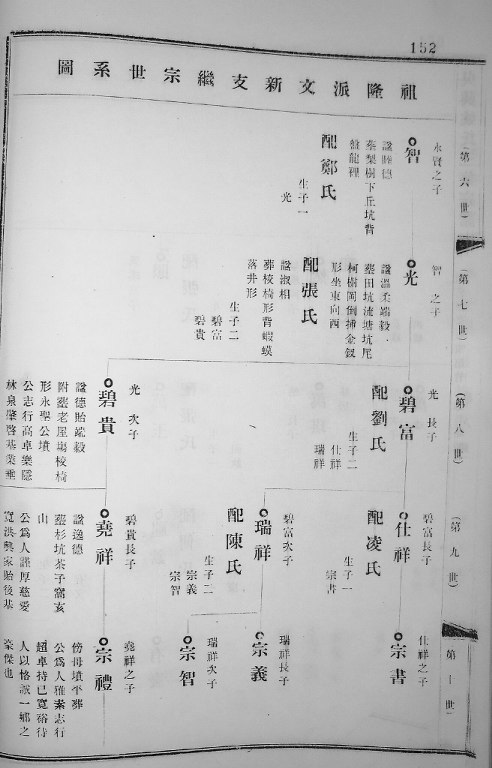 152
祖隆派文新支繼宗世系圖
第六世
永賢之子
智
諡睦德
葬梨樹下丘坑背
盤龍裡
配鄭氏
生子一
光
第七世
智之子
光
諡溫柔端毅
塟田坑流塘坑尾
柯樹岡倒揷金釵
形坐東向西
配張氏
諡淑相
葬校椅形背蝦蟆
落井形
生子二
碧富
碧貴
(第八世)
光長子
碧富
配劉氏
生子二
仕祥
瑞祥
光次子
碧貴
諡德貽端毅
附塟老屋塲校椅
形永聖公墳
公志行高卓樂隱
林泉肇啓基業垂
(第九世)
碧富長子
仕祥
配凌氏
生子一
宗書
碧富次子
瑞祥
配陳氏
生子二
宗義
宗智
碧貴長子
堯祥
諡逸德
塟杉坑茶子窩亥
山
公爲人謹厚慈愛
寬洪興家貽後基
第十世
仕祥之子
宗書
瑞祥長子
宗義
瑞祥次子
宗智
堯祥之子
宗禮
傍母墳平葬
公爲人雅素志行
超卓持已寬裕待
人以恪誠一鄉之
豪傑也